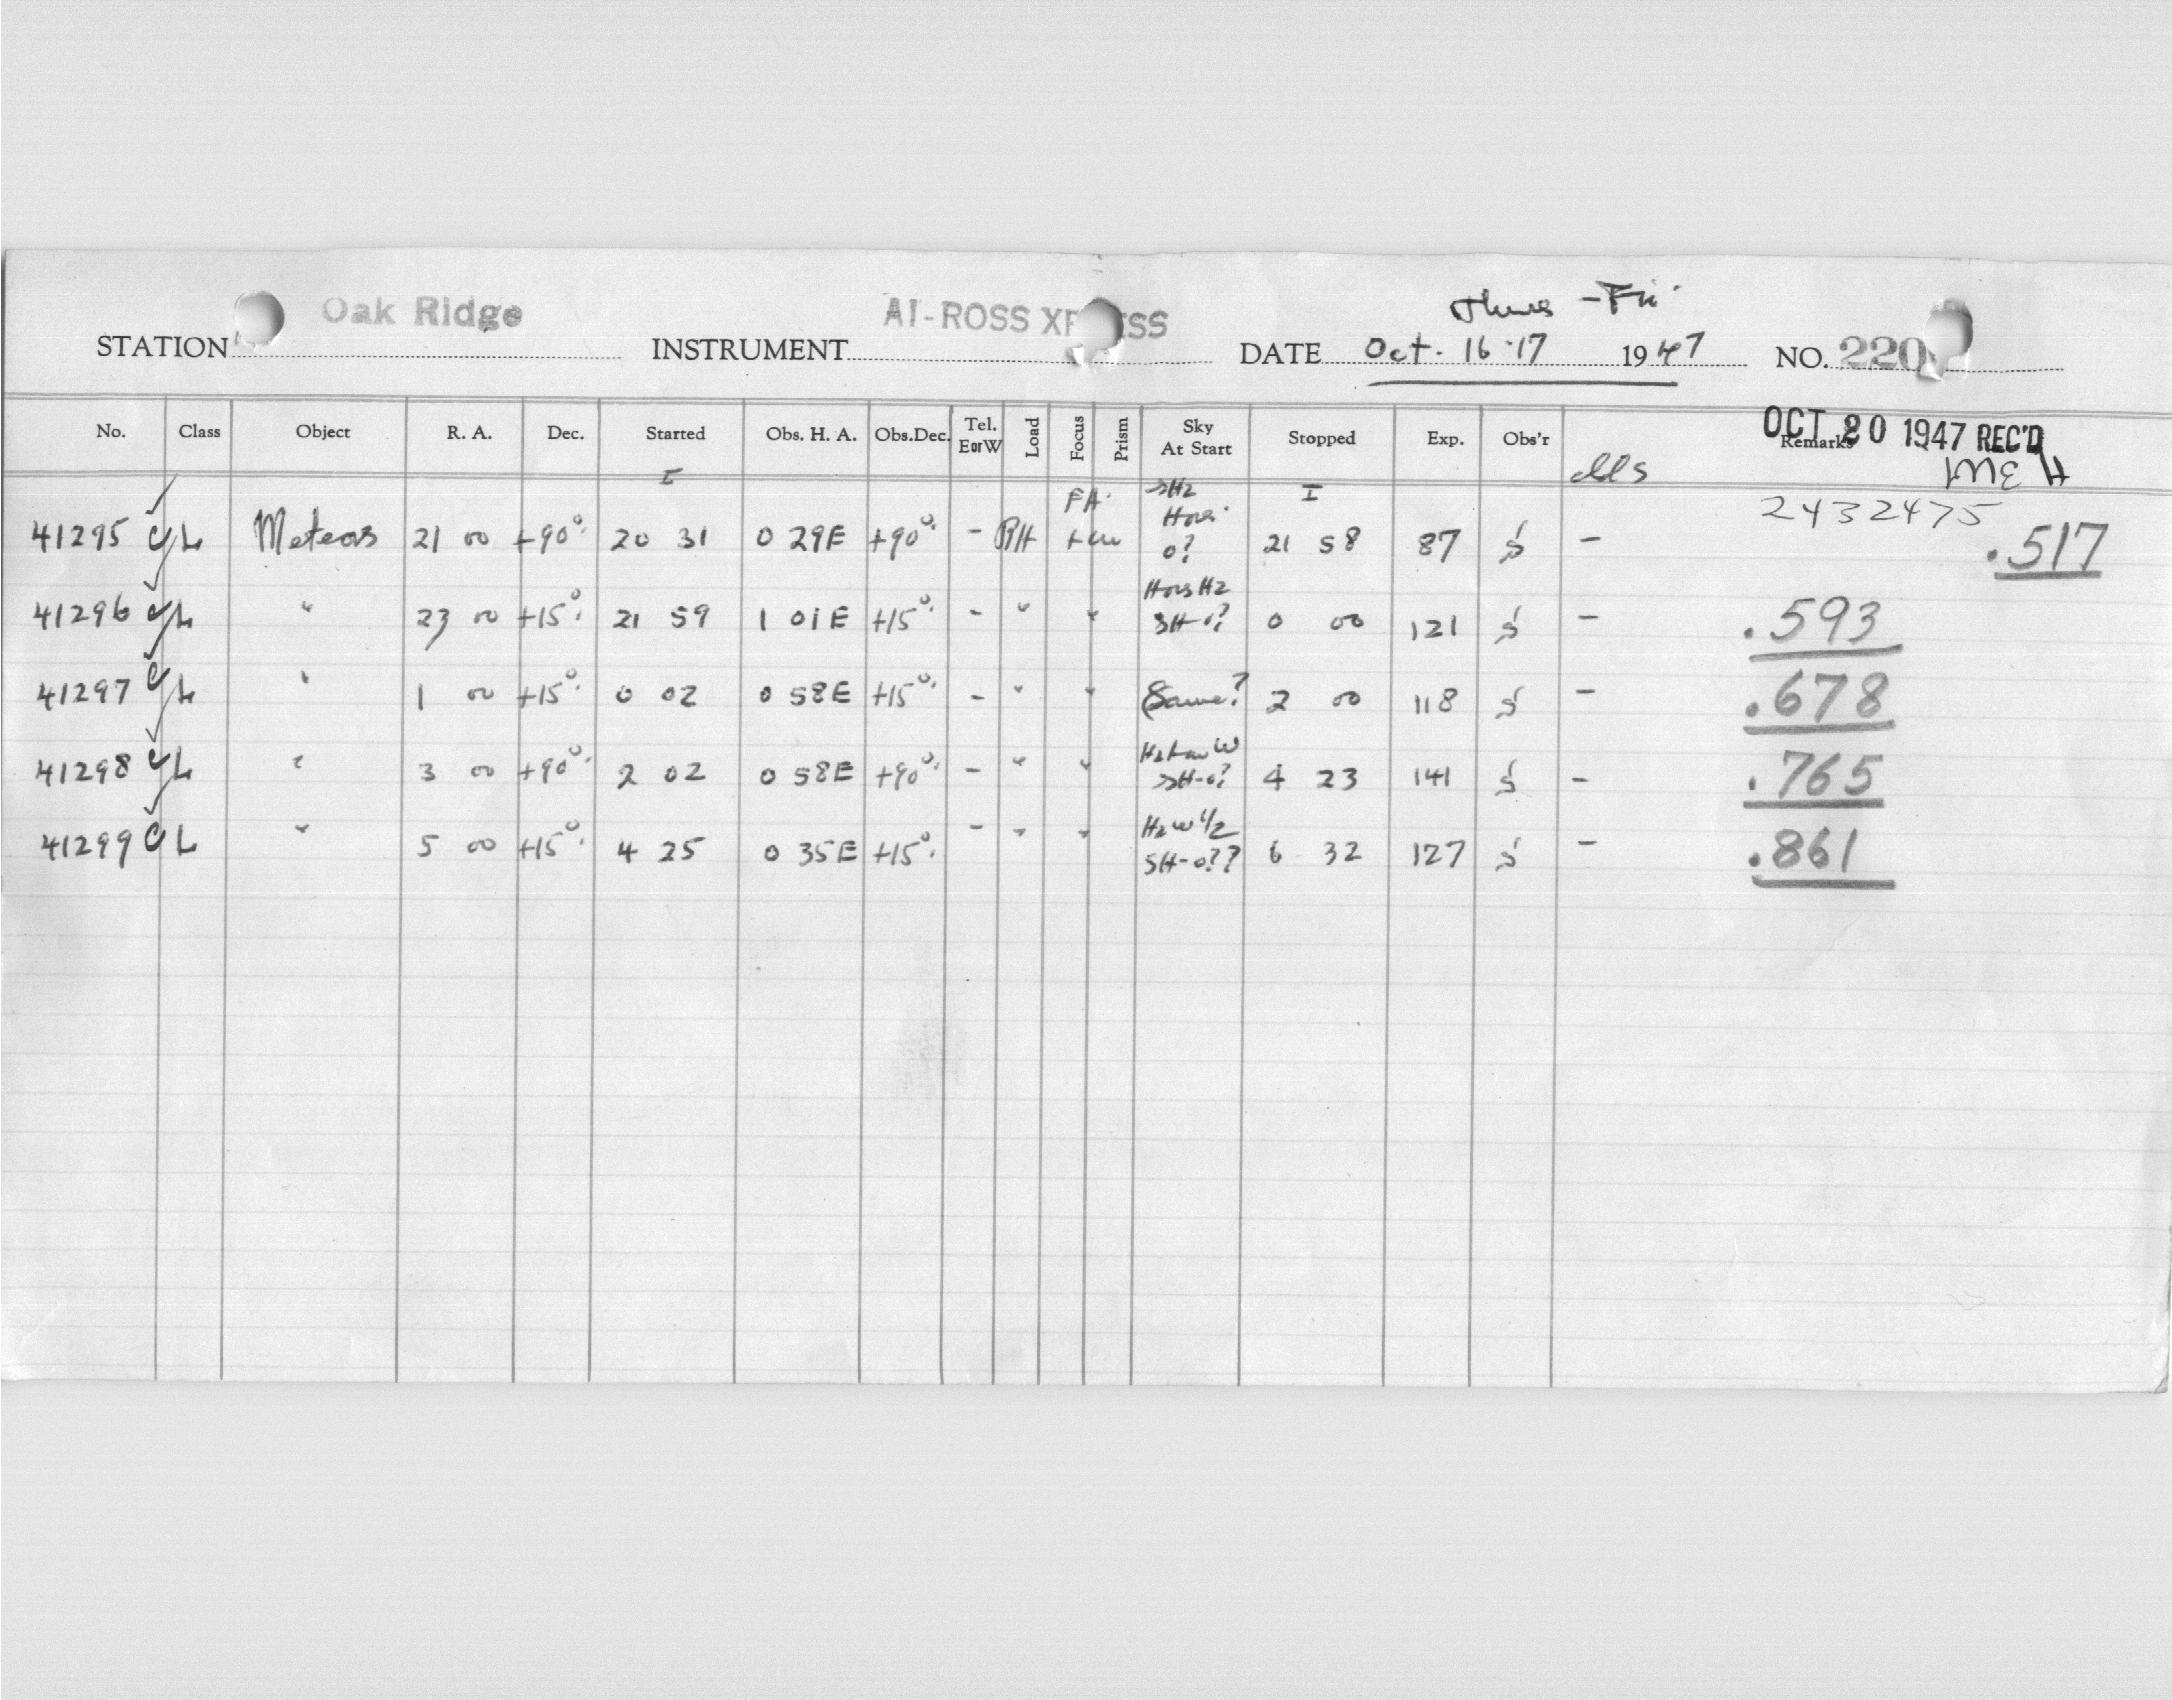 Oak Ridge AI-ROSS XP ESS Thurs - Fri.
STATION INSTRUMENT DATE Oct. 16-17 1947 NO. 220
No. Class Object R. A. Dec. Started Obs. H. A. Obs.Dec. Tel. EorW Load Focus Prism Sky At Start Stopped Exp. Obs'r Remarks
OCT 20 1947 REC'D
MEH
I FA. I 2432475
41295 C L Meteors 21 00 +90°. 20 31 0 29E +90°. - RH 0? 21 58 87 S - .517
41296 C L " 23 00 +15°. 21 59 1 01E +15°. - " " SH-0? 0 00 121 S - .593
41297 C L " 1 00 +15°. 0 02 0 58E +15°. - " " (Same? 2 00 118 S - .678
41298 C L " 3 00 +90°. 2 02 0 58E +90°. - " " >SH-0? 4 23 141 S - .765
41299 C L " 5 00 +15°. 4 25 0 35E +15°. - " " Hz W 1/2 SH-0?? 6 32 127 S - .861